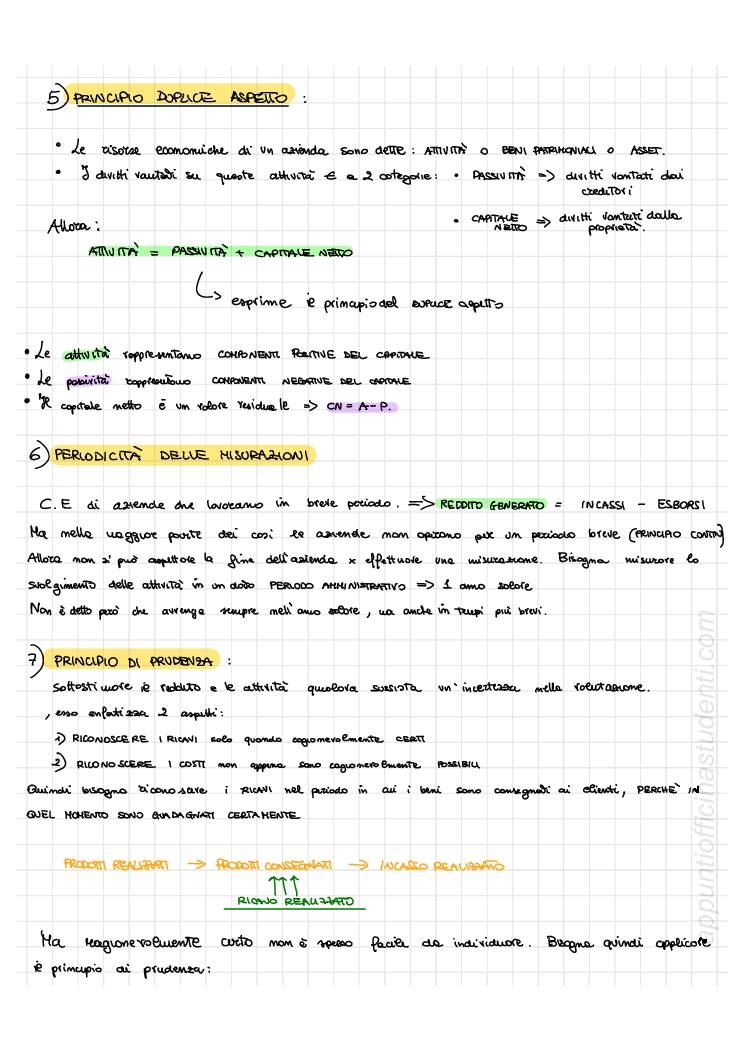 5) PRINCIPIO DUPLICE ASPETTO :
• Le risorse economiche di un azienda sono dette : ATTIVITÀ O BENI PATRIMONIALI O ASSET.
• I diritti vantati su queste attività € a 2 categorie: • PASSIVITÀ => diritti vantati dai
creditori
• CAPITALE NETTO => diritti vantati dalla proprietà.
Allora :
ATTIVITÀ = PASSIVITÀ + CAPITALE NETTO
↳ esprime il principio del DUPLICE aspetto
• Le attività rappresentano COMPONENTI POSITIVE DEL CAPITALE
• Le passività rappresentano COMPONENTI NEGATIVE DEL CAPITALE
• Il capitale netto è un valore residuale => CN = A - P.
6) PERIODICITÀ DELLE MISURAZIONI
C.E di aziende che lavorano in breve periodo. => REDDITO GENERATO = INCASSI - ESBORSI
Ma nella maggior parte dei casi le aziende non operano per un periodo breve (PRINCIPIO CONTIN)
Allora non si può aspettare la fine dell'azienda x effettuare una misurazione. Bisogna misurare lo
svolgimento delle attività in un dato PERIODO AMMINISTRATIVO => 1 anno solare
Non è detto però che avvenga sempre nell'anno solare, ma anche in tempi più brevi.
7) PRINCIPIO DI PRUDENZA :
Sottostimare il reddito e le attività qualora sussista un'incertezza nella valutazione.
, esso enfatizza 2 aspetti :
1) RICONOSCERE I RICAVI solo quando ragionevolmente CERTI
2) RICONOSCERE I COSTI non appena sono ragionevolmente POSSIBILI
Quindi bisogna riconoscere i RICAVI nel periodo in cui i beni sono consegnati ai clienti, PERCHÈ IN
QUEL MOMENTO SONO GUADAGNATI CERTAMENTE
PRODOTTI REALIZZATI → PRODOTTI CONSEGNATI → INCASSO REALIZZATO
↑↑↑
RICAVO REALIZZATO
Ma ragionevolmente certo non è spesso facile da individuare. Bisogna quindi applicare
il principio di prudenza :
appuntiofficinastudenti.com